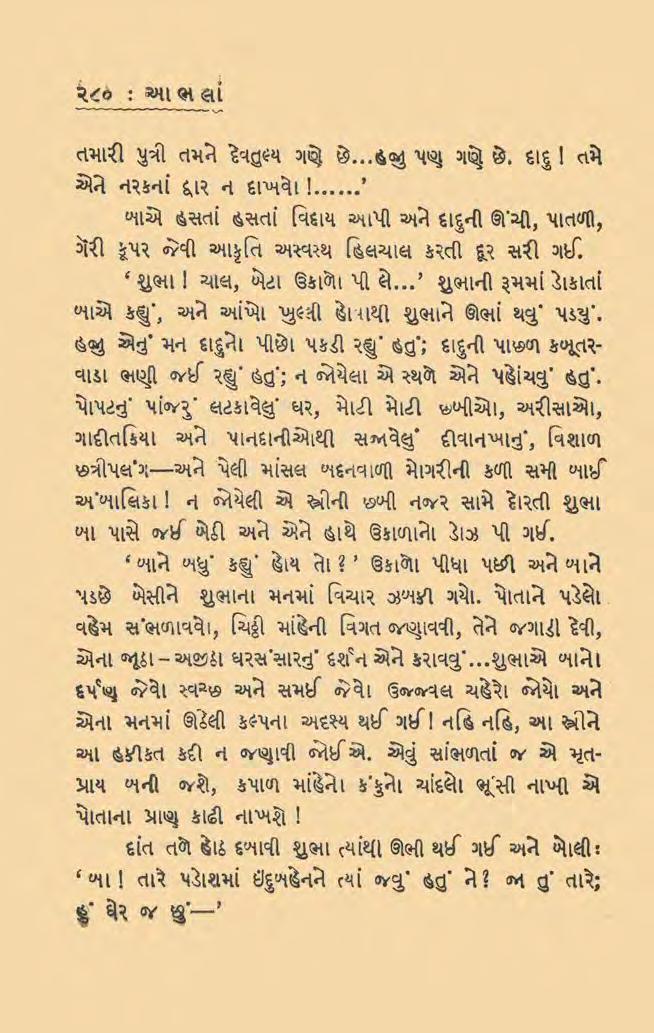 ૨૮૦ : આભલાં
તમારી પુત્રી તમને દેવતુલ્ય ગણે છે...હજી પણ ગણે છે. દાદુ ! તમે
એને નરકનાં દ્વાર ન દાખવો !......’
બાએ હસતાં હસતાં વિદાય આપી અને દાદુની ઊંચી, પાતળી,
ગૅરી કૂપર જેવી આકૃતિ અસ્વસ્થ હિલચાલ કરતી દૂર સરી ગઈ.
‘ શુભા ! ચાલ, બેટા ઉકાળો પી લે...’ શુભાની રૂમમાં ડોકાતાં
બાએ કહ્યું, અને આંખો ખુલ્લી હોવાથી શુભાને ઊભાં થવું પડ્યું.
હજી એનું મન દાદુનો પીછો પકડી રહ્યું હતું; દાદુની પાછળ કબૂતર-
વાડા ભણી જઈ રહ્યું હતું; ન જોયેલા એ સ્થળે એને પહોંચવું હતું.
પોપટનું પાંજરું લટકાવેલું ઘર, મોટી મોટી છબીઓ, અરીસાઓ,
ગાદીતકિયા અને પાનદાનીઓથી સજાવેલું દીવાનખાનું, વિશાળ
છત્રીપલંગ—અને પેલી માંસલ બદનવાળી મોગરીની કળી સમી બાઈ
અંબાલિકા ! ન જોયેલી એ સ્ત્રીની છબી નજર સામે દોરતી શુભા
બા પાસે જઈ બેઠી અને એને હાથે ઉકાળાનો ડોઝ પી ગઈ.
‘ બાને બધું કહ્યું હોય તો ? ’ ઉકાળો પીધા પછી અને બાને
પડછે બેસીને શુભાના મનમાં વિચાર ઝબકી ગયો. પોતાને પડેલો
વહેમ સંભળાવવો, ચિઠ્ઠી માંહેની વિગત જણાવવી, તેને જગાડી દેવી,
એના જૂઠા – અજીઠા ઘરસંસારનું દર્શન એને કરાવવું...શુભાએ બાનો
દર્પણ જેવો સ્વચ્છ અને સમઈ જેવો ઉજ્જ્વલ ચહેરો જોયો અને
એના મનમાં ઊઠેલી કલ્પના અદૃશ્ય થઈ ગઈ ! નહિ નહિ, આ સ્ત્રીને
આ હકીકત કદી ન જણાવી જોઈએ. એવું સાંભળતાં જ એ મૃત-
પ્રાય બની જશે, કપાળ માંહેનો કંકુનો ચાંદલો ભૂંસી નાખી એ
પોતાના પ્રાણ કાઢી નાખશે !
દાંત તળે હોઠ દબાવી શુભા ત્યાંથી ઊભી થઈ ગઈ અને બોલી :
‘ બા ! તારે પડોશમાં ઇંદુબહેનને ત્યાં જવું હતું ને ? જા તું તારે;
હું ઘેર જ છું—’